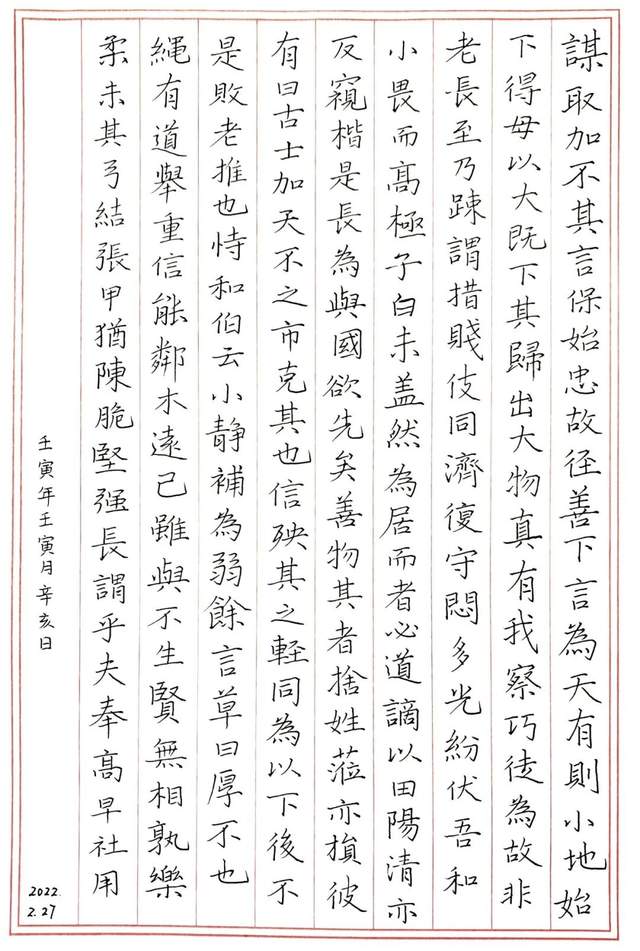 謀取加不其言保始忠故径善下言為天有則小地始
下得毋以大既下其歸出大物真有我察巧徒為故非
老長至乃踈謂措賤伎同濟復守悶多光紛伏吾和
小畏而髙極子白未盖然為居而者必道謫以田陽清亦
反窺楷是長為與國欲先矣善物其者捨姓蒞亦損彼
有曰古士加天不之市克其也信殃其之輕同為以下後不
是敗老推也恃和伯云小静補為弱餘言草曰厚不也
繩有道舉重信能鄰木遠已雖與不生賢無相孰樂
柔未其弓結張甲猶陳脆堅强長謂乎夫奉髙早社用
壬寅年壬寅月辛亥日
2022.
2.27